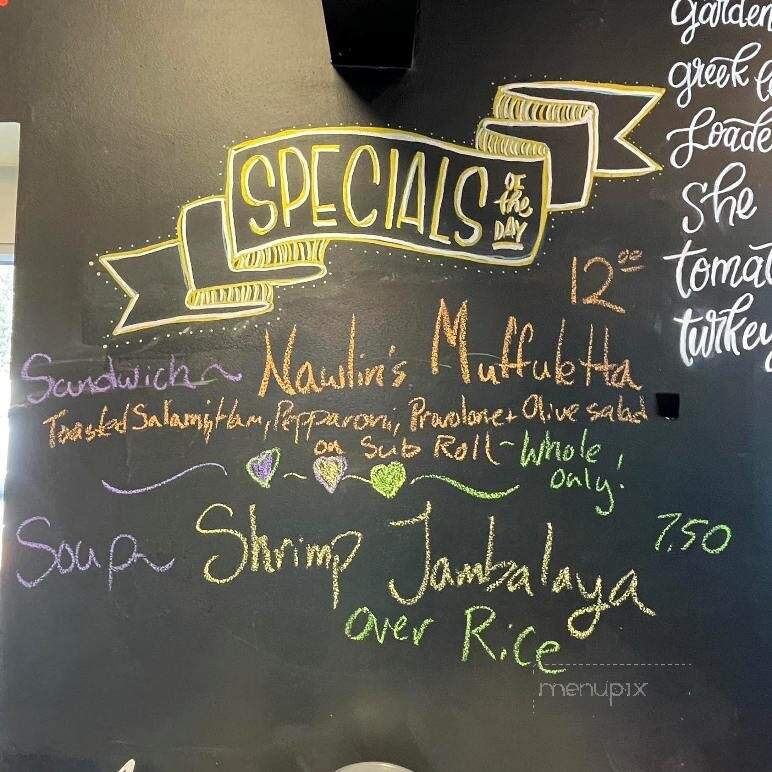 SPECIALS of the DAY
12.00
Sandwich~ Nawlin's Muffuletta
Toasted Salami, Ham, Pepparoni, Provolone + Olive salad
on Sub Roll - Whole
only!
Soup~ Shrimp Jambalaya 7.50
over Rice
garden
greek
Loade
She
tomat
turkey
menupix